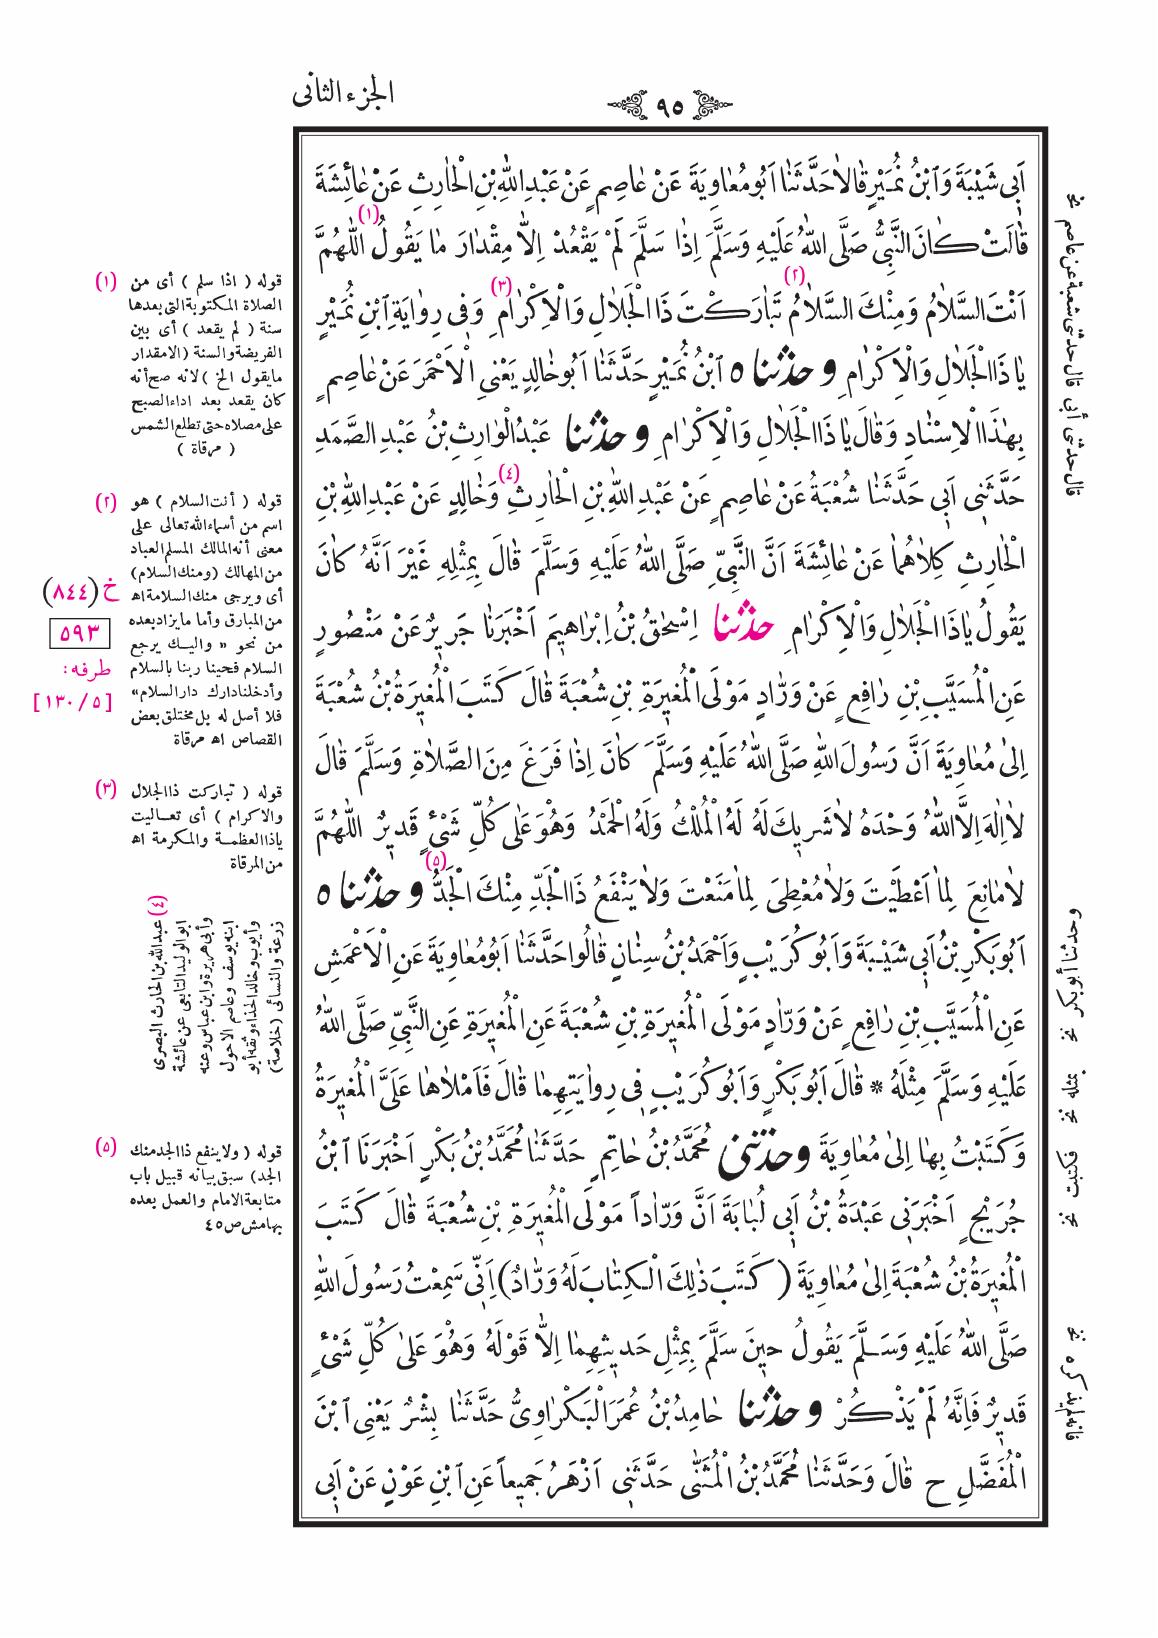 الجزء الثانى
٩٥
اَبِى شَيْبَةَ وَابْنُ نُمَيْرٍ قَالَا حَدَّثَنَا اَبُو مُعَاوِيَةَ عَنْ عَاصِمٍ عَنْ عَبْدِ اللّٰهِ بْنِ الْحَارِثِ عَنْ عَائِشَةَ
قَالَتْ كَانَ النَّبِىُّ صَلَّى اللّٰهُ عَلَيْهِ وَسَلَّمَ اِذَا سَلَّمَ لَمْ يَقْعُدْ اِلَّا مِقْدَارَ مَا يَقُولُ (١) اَللّٰهُمَّ
اَنْتَ السَّلَامُ وَمِنْكَ السَّلَامُ (٢) تَبَارَكْتَ ذَا الْجَلَالِ وَالْاِكْرَامِ (٣) وَفِى رِوَايَةِ ابْنِ نُمَيْرٍ
يَا ذَا الْجَلَالِ وَالْاِكْرَامِ وحدثنا ٥ ابْنُ نُمَيْرٍ حَدَّثَنَا اَبُو خَالِدٍ يَعْنِى الْاَحْمَرَ عَنْ عَاصِمٍ
بِهٰذَا الْاِسْنَادِ وَقَالَ يَا ذَا الْجَلَالِ وَالْاِكْرَامِ وحدثنا عَبْدُ الْوَارِثِ بْنُ عَبْدِ الصَّمَدِ
حَدَّثَنِى اَبِى حَدَّثَنَا شُعْبَةُ عَنْ عَاصِمٍ عَنْ عَبْدِ اللّٰهِ بْنِ الْحَارِثِ (٤) وَخَالِدٍ عَنْ عَبْدِ اللّٰهِ بْنِ
الْحَارِثِ كِلَاهُمَا عَنْ عَائِشَةَ اَنَّ النَّبِىَّ صَلَّى اللّٰهُ عَلَيْهِ وَسَلَّمَ قَالَ بِمِثْلِهِ غَيْرَ اَنَّهُ كَانَ
يَقُولُ يَا ذَا الْجَلَالِ وَالْاِكْرَامِ حدثنا اِسْحٰقُ بْنُ اِبْرَاهِيمَ اَخْبَرَنَا جَرِيرٌ عَنْ مَنْصُورٍ
عَنِ الْمُسَيَّبِ بْنِ رَافِعٍ عَنْ وَرَّادٍ مَوْلَى الْمُغِيرَةِ بْنِ شُعْبَةَ قَالَ كَتَبَ الْمُغِيرَةُ بْنُ شُعْبَةَ
اِلىٰ مُعَاوِيَةَ اَنَّ رَسُولَ اللّٰهِ صَلَّى اللّٰهُ عَلَيْهِ وَسَلَّمَ كَانَ اِذَا فَرَغَ مِنَ الصَّلَاةِ وَسَلَّمَ قَالَ
لَا اِلٰهَ اِلَّا اللّٰهُ وَحْدَهُ لَا شَرِيكَ لَهُ لَهُ الْمُلْكُ وَلَهُ الْحَمْدُ وَهُوَ عَلىٰ كُلِّ شَىْءٍ قَدِيرٌ اَللّٰهُمَّ
لَا مَانِعَ لِمَا اَعْطَيْتَ وَلَا مُعْطِىَ لِمَا مَنَعْتَ وَلَا يَنْفَعُ ذَا الْجَدِّ مِنْكَ الْجَدُّ (٥) وحدثنا ٥
اَبُو بَكْرِ بْنُ اَبِى شَيْبَةَ وَاَبُو كُرَيْبٍ وَاَحْمَدُ بْنُ سِنَانٍ قَالُوا حَدَّثَنَا اَبُو مُعَاوِيَةَ عَنِ الْاَعْمَشِ
عَنِ الْمُسَيَّبِ بْنِ رَافِعٍ عَنْ وَرَّادٍ مَوْلَى الْمُغِيرَةِ بْنِ شُعْبَةَ عَنِ الْمُغِيرَةِ عَنِ النَّبِىِّ صَلَّى اللّٰهُ
عَلَيْهِ وَسَلَّمَ مِثْلَهُ * قَالَ اَبُو بَكْرٍ وَاَبُو كُرَيْبٍ فِى رِوَايَتِهِمَا قَالَ فَاَمْلَاهَا عَلَىَّ الْمُغِيرَةُ
وَكَتَبْتُ بِهَا اِلىٰ مُعَاوِيَةَ وحدثنى مُحَمَّدُ بْنُ حَاتِمٍ حَدَّثَنَا مُحَمَّدُ بْنُ بَكْرٍ اَخْبَرَنَا ابْنُ
جُرَيْجٍ اَخْبَرَنِى عَبْدَةُ بْنُ اَبِى لُبَابَةَ اَنَّ وَرَّاداً مَوْلَى الْمُغِيرَةِ بْنِ شُعْبَةَ قَالَ كَتَبَ
الْمُغِيرَةُ بْنُ شُعْبَةَ اِلىٰ مُعَاوِيَةَ (كَتَبَ ذٰلِكَ الْكِتَابَ لَهُ وَرَّادٌ) اِنِّى سَمِعْتُ رَسُولَ اللّٰهِ
صَلَّى اللّٰهُ عَلَيْهِ وَسَلَّمَ يَقُولُ حِينَ سَلَّمَ بِمِثْلِ حَدِيثِهِمَا اِلَّا قَوْلَهُ وَهُوَ عَلىٰ كُلِّ شَىْءٍ
قَدِيرٌ فَاِنَّهُ لَمْ يَذْكُرْ وحدثنا حَامِدُ بْنُ عُمَرَ الْبَكْرَاوِىُّ حَدَّثَنَا بِشْرٌ يَعْنِى ابْنَ
الْمُفَضَّلِ ح قَالَ وَحَدَّثَنَا مُحَمَّدُ بْنُ الْمُثَنّٰى حَدَّثَنِى اَزْهَرُ جَمِيعاً عَنِ ابْنِ عَوْنٍ عَنْ اَبِى
قال حدثنى أبى قال حدثنى شعبة عن عاصم نخ
وحدثنا أبو بكر نخ
بمثله نخ
فكتبت نخ
فانه لم يذكره نخ
(١) قوله ( اذا سلم ) أى من
الصلاة المكتوبة التى بعدها
سنة ( لم يقعد ) أى بين
الفريضة والسنة (الا مقدار
ما يقول الخ ) لانه صح أنه
كان يقعد بعد اداء الصبح
على مصلاه حتى تطلع الشمس
( مرقاة )
(٢) قوله ( أنت السلام ) هو
اسم من أسماء الله تعالى على
معنى أنه المالك المسلم العباد
من المهالك (ومنك السلام)
أى ويرجى منك السلامة اه
من المبارق وأما ما يزاد بعده
من نحو « واليك يرجع
السلام فحينا ربنا بالسلام
وأدخلنا دارك دار السلام»
فلا أصل له بل مختلق بعض
القصاص اه مرقاة
خ (٨٤٤)
٥٩٣
طرفه:
[١٣٠/٥]
(٣) قوله ( تباركت ذا الجلال
والاكرام ) أى تعـاليت
ياذا العظمـة والمكرمة اه
من المرقاة
(٤) عبدالله بن الحارث البصرى
ابو الوليد التابعى عن عائشة
وأبى هريرة وابن عباس وعنه
ابنه يوسف وعاصم الاحول
وأيوب وخالد الحذاء وثقه أبو
زرعة والنسائى (خلاصة)
(٥) قوله ( ولا ينفع ذا الجد منك
الجد) سبق بيانه قبيل باب
متابعة الامام والعمل بعده
بهامش ص ٤٥